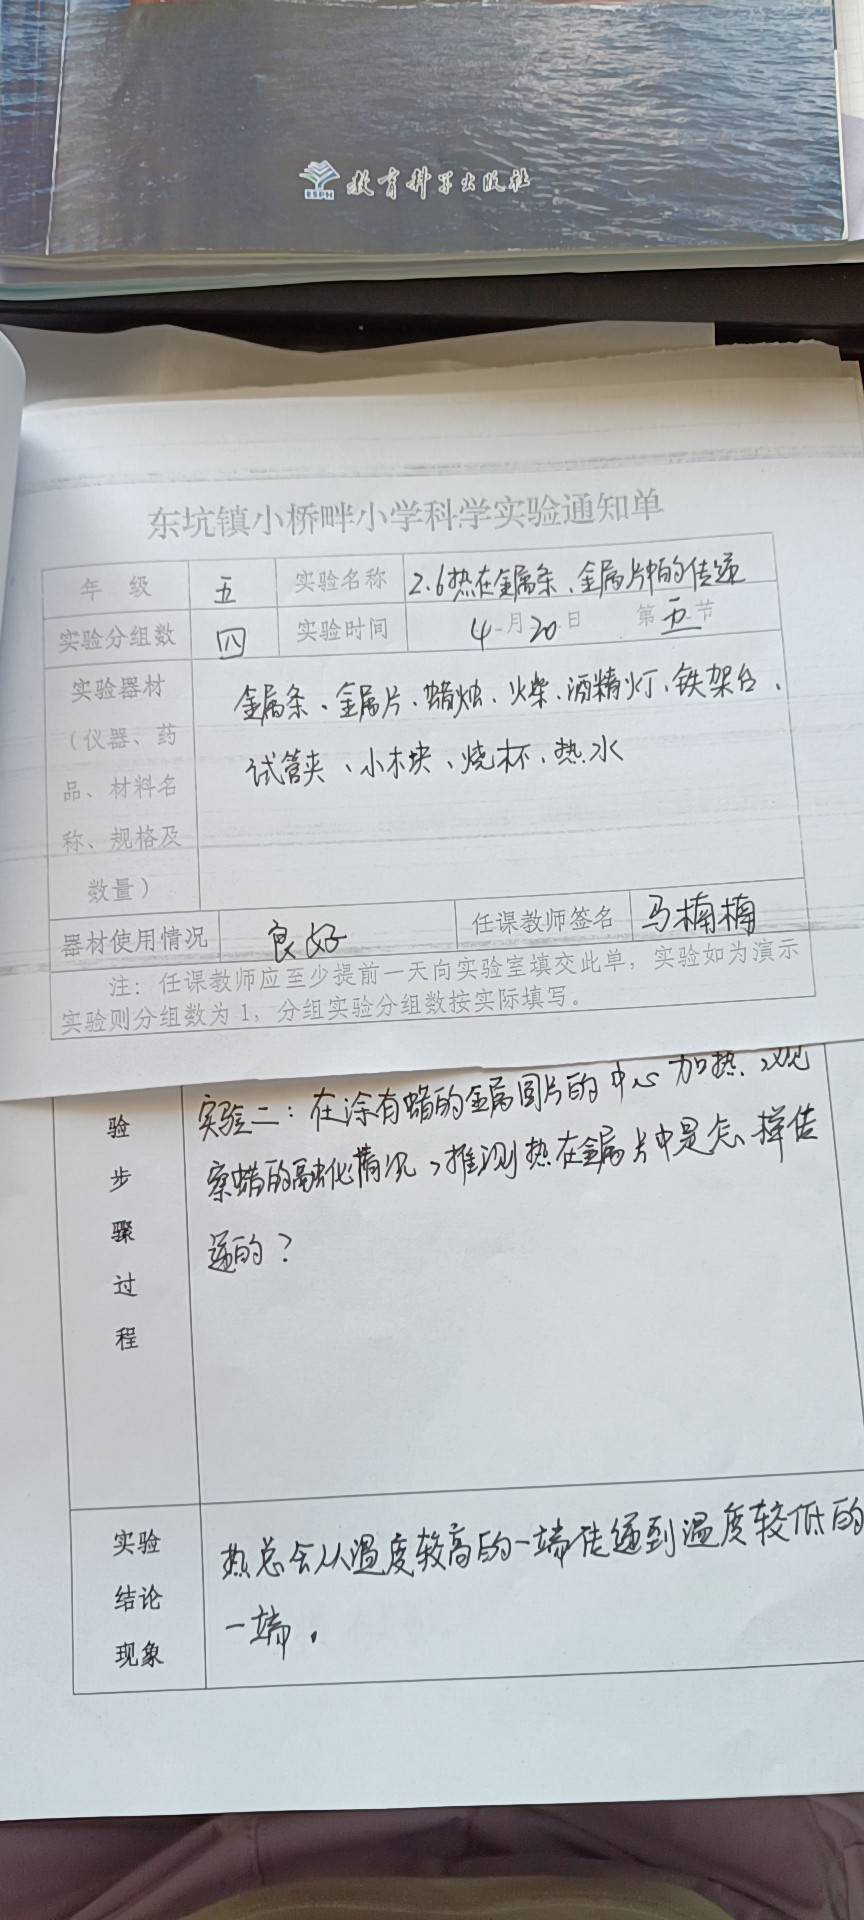 ESPH 教育科学出版社
东坑镇小桥畔小学科学实验通知单
年 级 五 实验名称 2.6热在金属条、金属片中的传递
实验分组数 四 实验时间 4月20日 第五节
实验器材 金属条、金属片、蜡烛、火柴、酒精灯、铁架台、
（仪器、药 试管夹、小木块、烧杯、热水
品、材料名
称、规格及
数量）
器材使用情况 良好 任课教师签名 马楠楠
注：任课教师应至少提前一天向实验室填交此单，实验如为演示
实验则分组数为1，分组实验分组数按实际填写。
验 实验二：在涂有蜡的金属圆片的中心加热，观
步 察蜡的融化情况，推测热在金属片中是怎样传
骤 递的？
过
程
实验 热总会从温度较高的一端传递到温度较低的
结论 一端。
现象